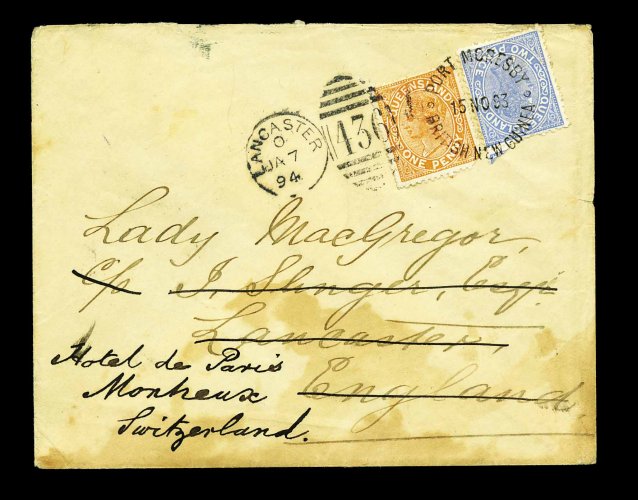 QUEENSLAND
ONE PENNY
TWO PENCE
QUEENSLAND
PORT MORESBY
15 NO 93
BRITISH NEW GUINEA
436
LANCASTER
O
JA 7
94
Lady MacGregor,
c/o J. Slinger, Esqr.
Lancaster,
England.
Hotel de Paris
Montreux
Switzerland.